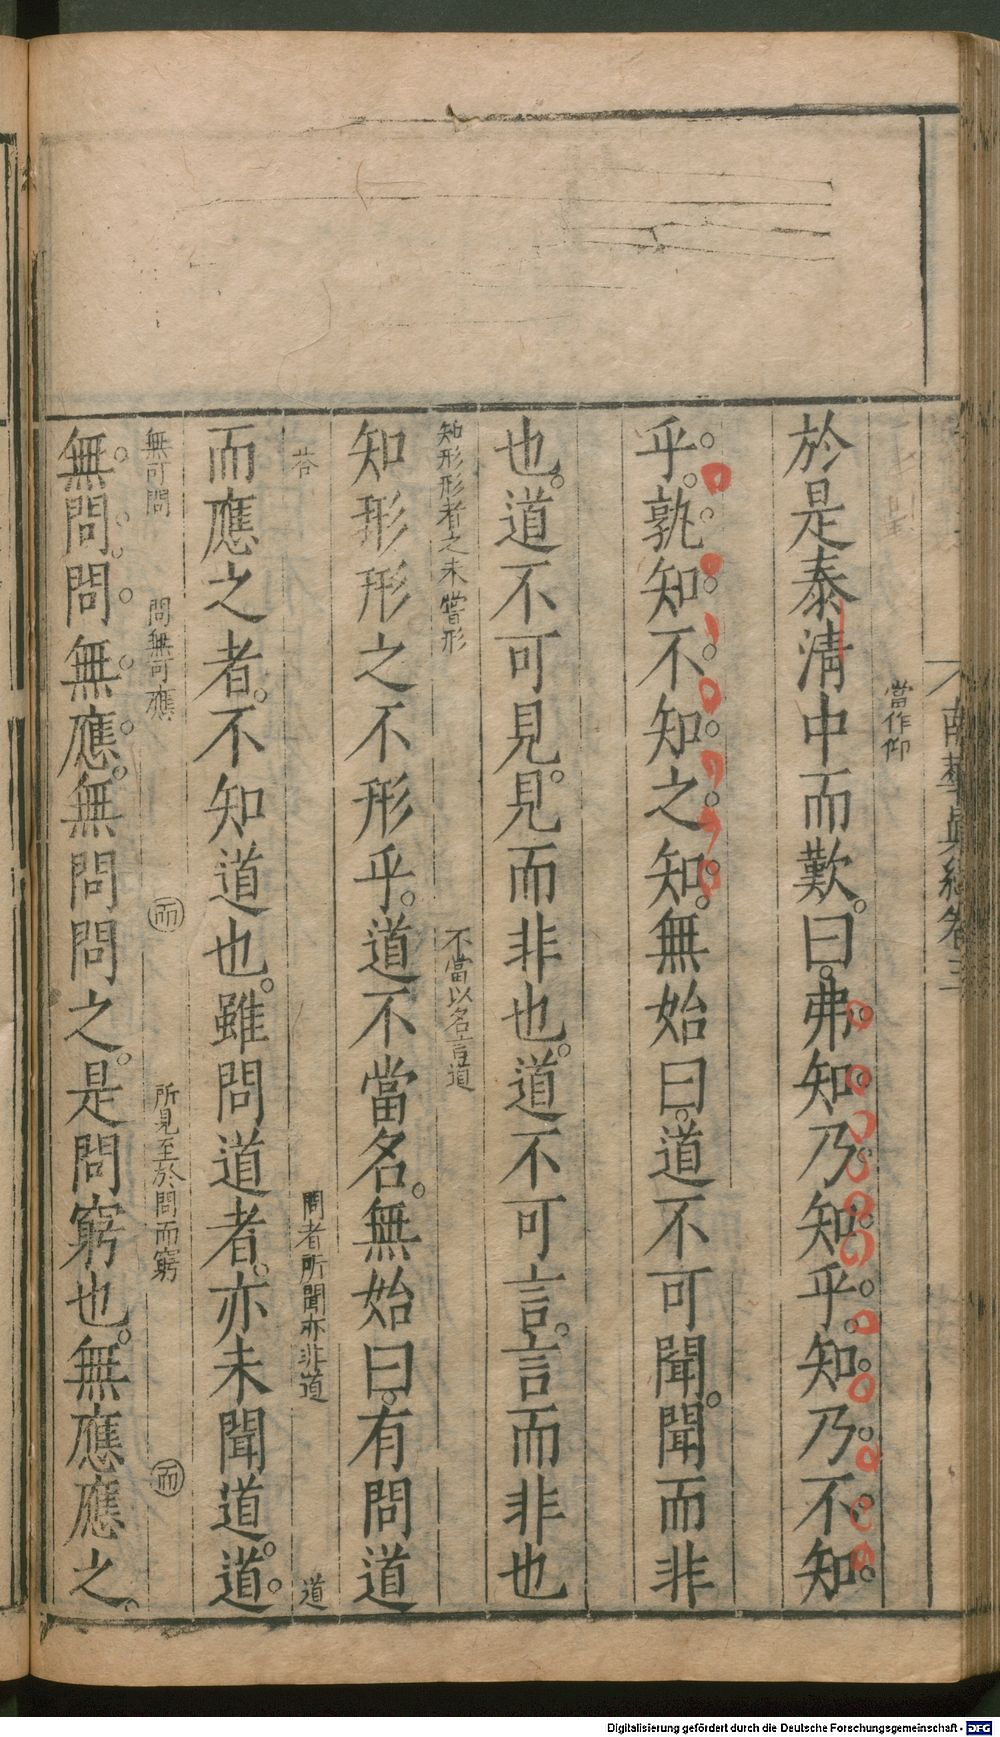 南華眞經卷三
當作仰
於是泰淸中而歎曰弗知乃知乎知乃不知
乎孰知不知之知無始曰道不可聞聞而非
也道不可見見而非也道不可言言而非也
知形形者之未嘗形
不當以名言道
知形形之不形乎道不當名無始曰有問道
荅
問者所聞亦非道
道
而應之者不知道也雖問道者亦未聞道道
無可問
問無可應
而
所見至於問而窮
而
無問問無應無問問之是問窮也無應應之
Digitalisierung gefördert durch die Deutsche Forschungsgemeinschaft - DFG